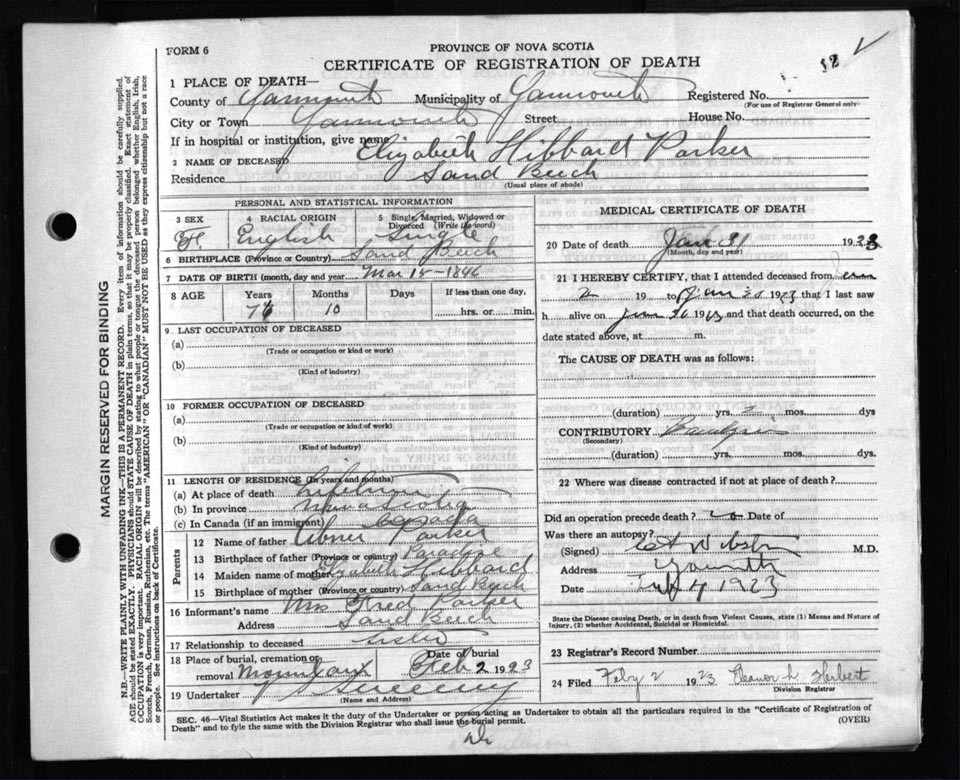 FORM 6
PROVINCE OF NOVA SCOTIA
CERTIFICATE OF REGISTRATION OF DEATH
1 PLACE OF DEATH—
County of Yarmouth Municipality of Yarmouth Registered No.
(For use of Registrar General only)
City or Town Yarmouth Street House No.
If in hospital or institution, give name
2 NAME OF DECEASED Elizabeth Hibbard Parker
Residence Sand Beach
(Usual place of abode)
PERSONAL AND STATISTICAL INFORMATION
3 SEX
4 RACIAL ORIGIN
English
5 Single, Married, Widowed or Divorced (Write the word)
Single
6 BIRTHPLACE (Province or Country) Sand Beach
7 DATE OF BIRTH (month, day and year) Mar 15-1846
8 AGE Years Months Days If less than one day,
76 10 hrs. or min.
9 LAST OCCUPATION OF DECEASED
(a)
(Trade or occupation or kind or work)
(b)
(Kind of industry)
10 FORMER OCCUPATION OF DECEASED
(a)
(Trade or occupation or kind of work)
(b)
(Kind of industry)
11 LENGTH OF RESIDENCE (In years and months)
(a) At place of death Lifetime
(b) In province Nova Scotia
(c) In Canada (if an immigrant) Canada
Parents
12 Name of father Abner Parker
13 Birthplace of father (Province or country) Paradise
14 Maiden name of mother Elizabeth Hibbard
15 Birthplace of mother (Province or country) Sand Beach
16 Informant's name Mrs Parker
Address Sand Beach
17 Relationship to deceased Sister
18 Place of burial, cremation or removal Mountain Date of burial Feb 2 1923
19 Undertaker
(Name and Address)
MEDICAL CERTIFICATE OF DEATH
20 Date of death Jan 31 1923
(Month, day and year)
21 I HEREBY CERTIFY, that I attended deceased from
2 19 to Jan 30 1923 that I last saw
h alive on Jan 30 1923 and that death occurred, on the
date stated above, at m.
The CAUSE OF DEATH was as follows:
(duration) yrs. 2 mos. dys
CONTRIBUTORY
(Secondary)
(duration) yrs. mos. dys.
22 Where was disease contracted if not at place of death?
Did an operation precede death? no Date of
Was there an autopsy?
(Signed) Webster M.D.
Address Yarmouth
Date Feby 1923
State the Disease causing Death, or in death from Violent Causes, state (1) Means and Nature of Injury, (2) whether Accidental, Suicidal or Homicidal.
23 Registrar's Record Number
24 Filed Feby 2 1923 Eleanor L Herbert
Division Registrar
SEC. 46—Vital Statistics Act makes it the duty of the Undertaker or person acting as Undertaker to obtain all the particulars required in the "Certificate of Registration of
Death" and to fyle the same with the Division Registrar who shall issue the burial permit. (OVER)
MARGIN RESERVED FOR BINDING
N.B.—WRITE PLAINLY WITH UNFADING INK—THIS IS A PERMANENT RECORD. Every item of information should be carefully supplied.
AGE should be stated EXACTLY. PHYSICIANS should STATE CAUSE OF DEATH in plain terms, so that it may be properly classified. Exact statement of
OCCUPATION is very important. RACIAL ORIGIN will be described by stating to what people or tongue the deceased person belonged whether English, Irish,
Scotch, French, German, Russian, Ruthenian, etc. The terms "AMERICAN" OR "CANADIAN" MUST NOT BE USED as they express citizenship but not a race
or people. See instructions on back of Certificate.